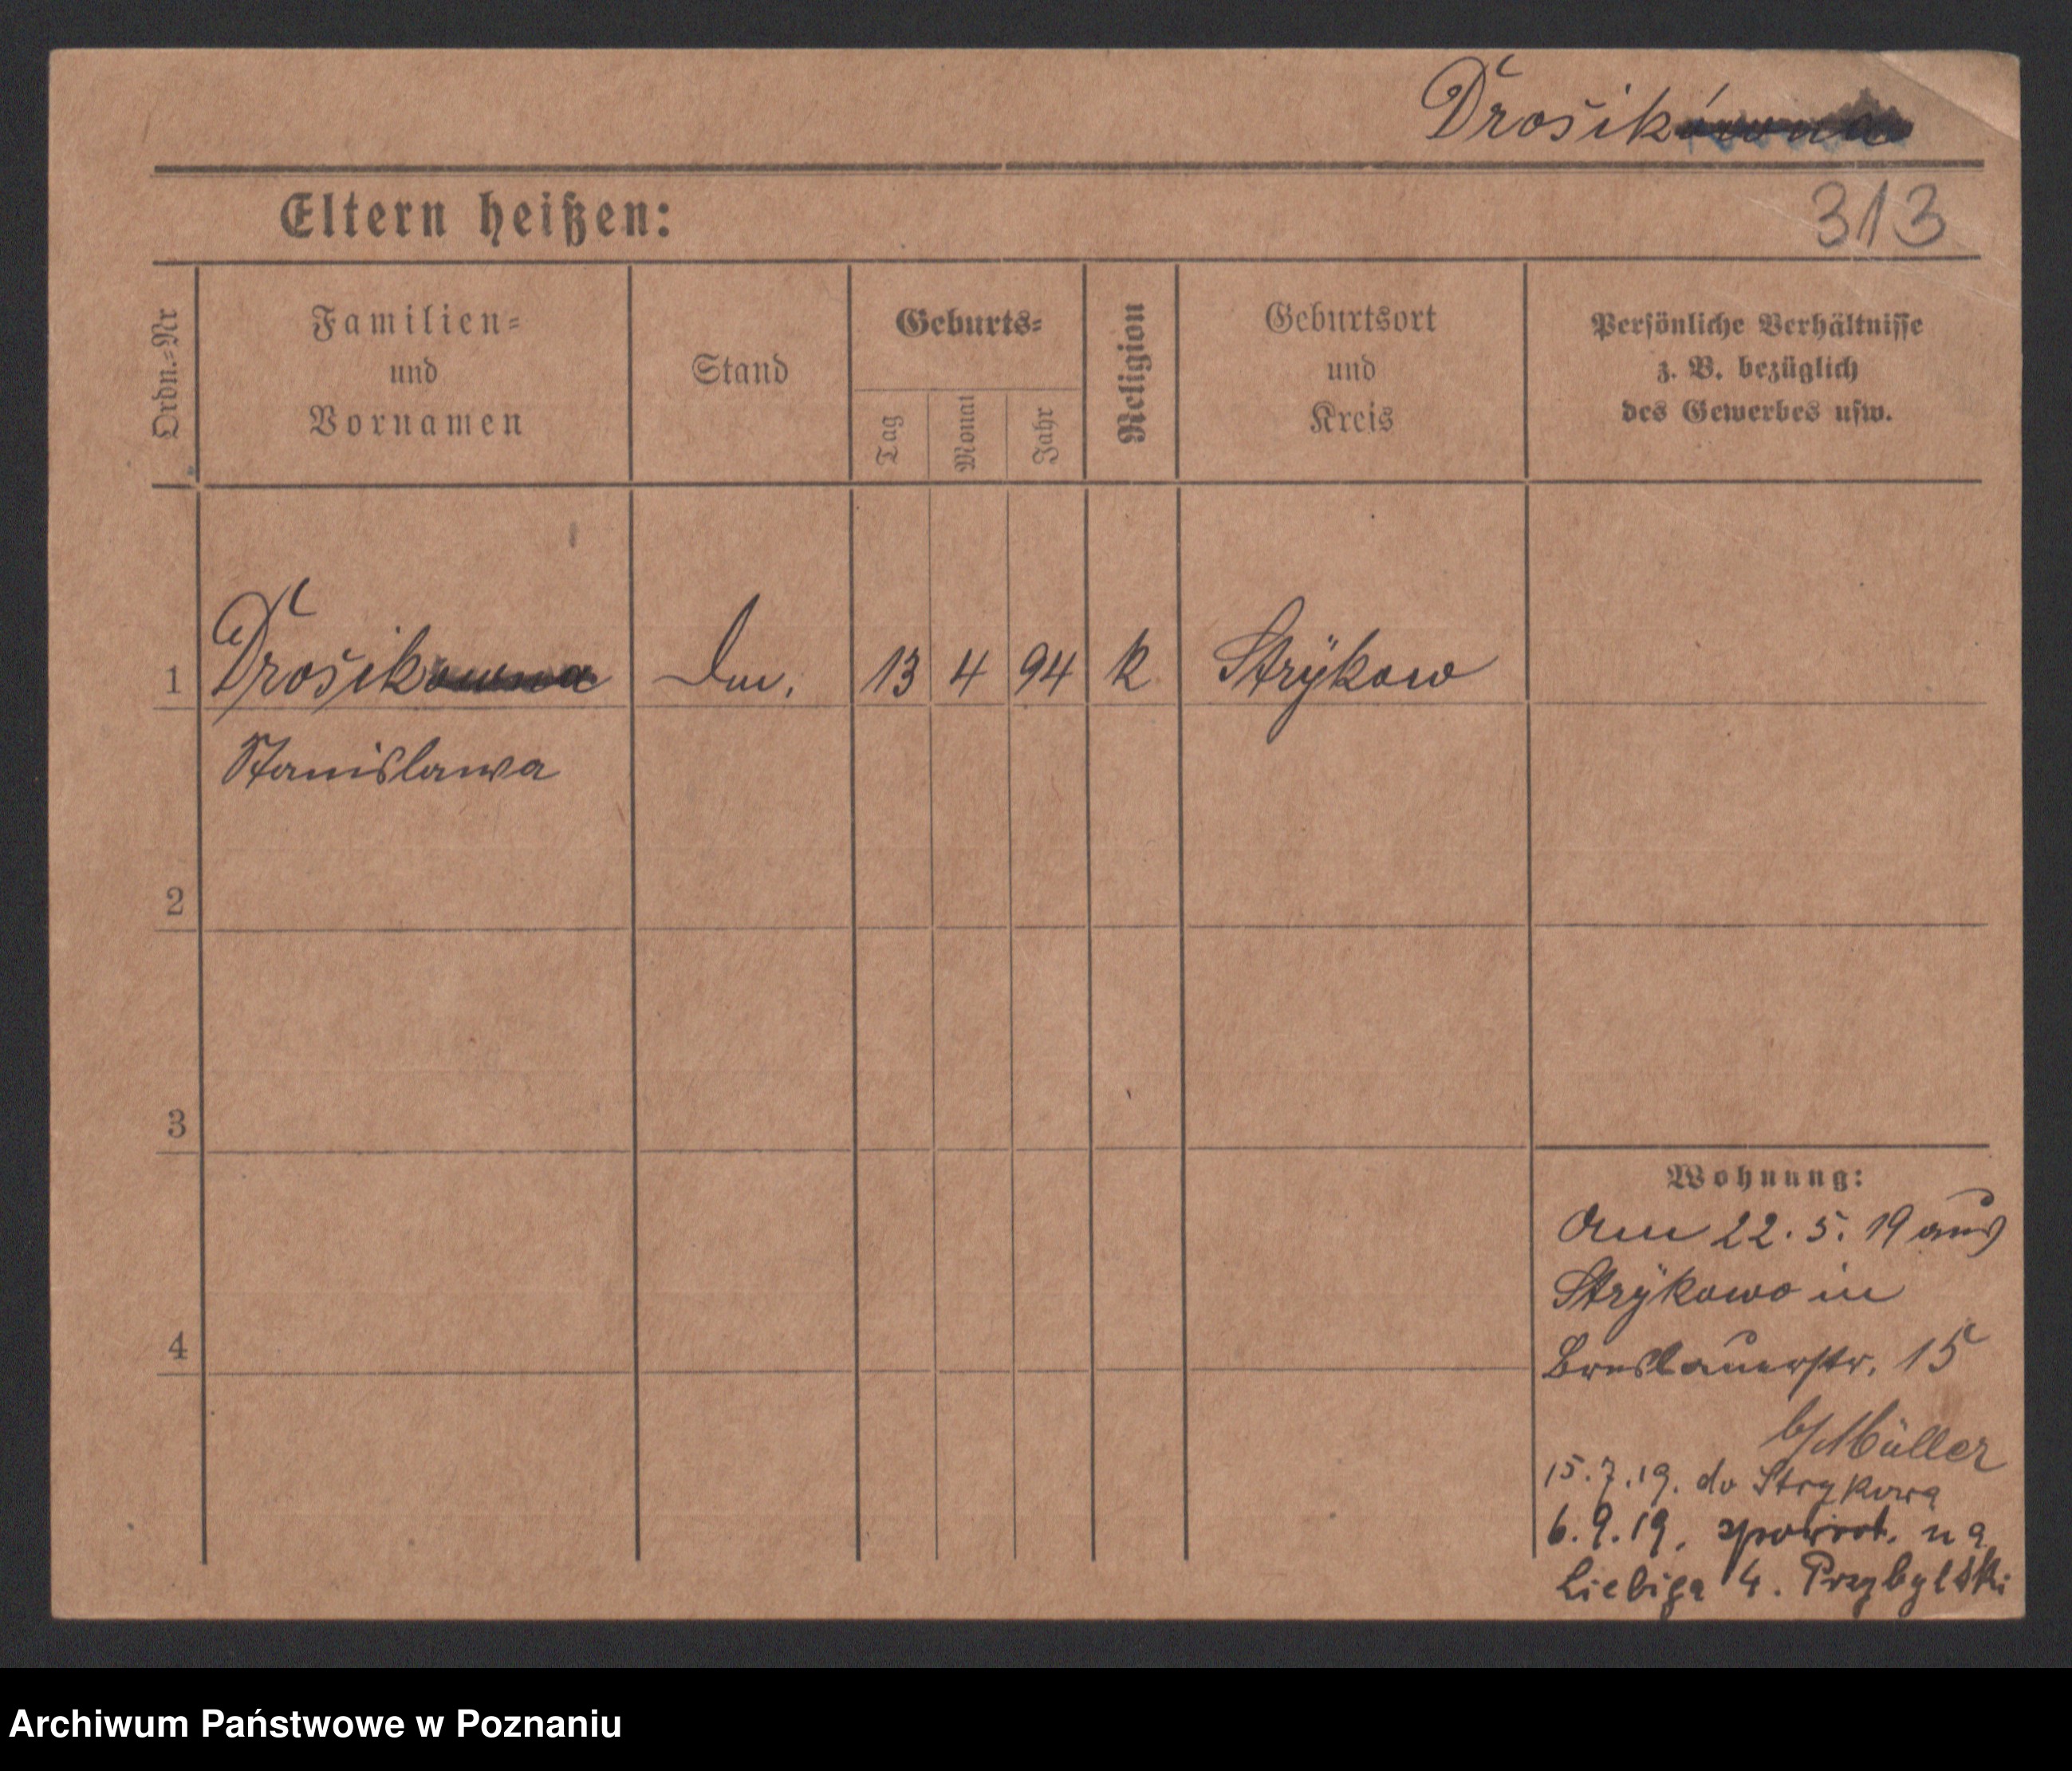 Drośikówna
Eltern heißen:
313
Ordn.=Nr
Familien=
und
Vornamen
Stand
Geburts=
Tag
Monat
Jahr
Religion
Geburtsort
und
Kreis
Persönliche Verhältnisse
z. B. bezüglich
des Gewerbes usw.
1 Drośikówna 13 4 94 k Strÿkow
Stanislawa
2
3
4
Wohnung:
Am 22. 5. 19 aus
Strÿkowo in
Breslauerstr. 15
b/Müller
15.7.19. do Strykowa
6.9.19. zpowrot. na
Liebiga 4. Przybylski
Archiwum Państwowe w Poznaniu